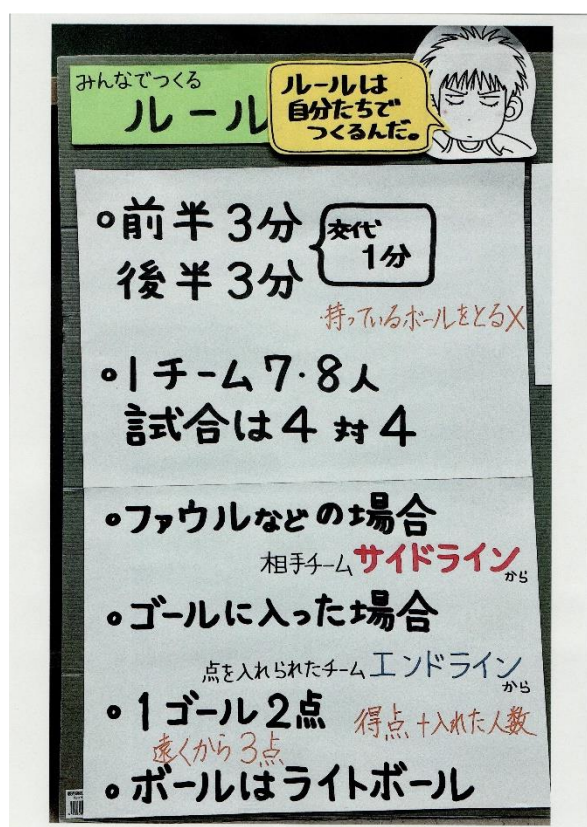 みんなでつくる
ルール
ルールは
自分たちで
つくるんだ。
○前半3分
後半3分
交代
1分
・持っているボールをとる×
○1チーム7・8人
試合は4対4
○ファウルなどの場合
相手チームサイドラインから
○ゴールに入った場合
点を入れられたチームエンドラインから
○1ゴール2点
得点+入れた人数
遠くから3点
○ボールはライトボール